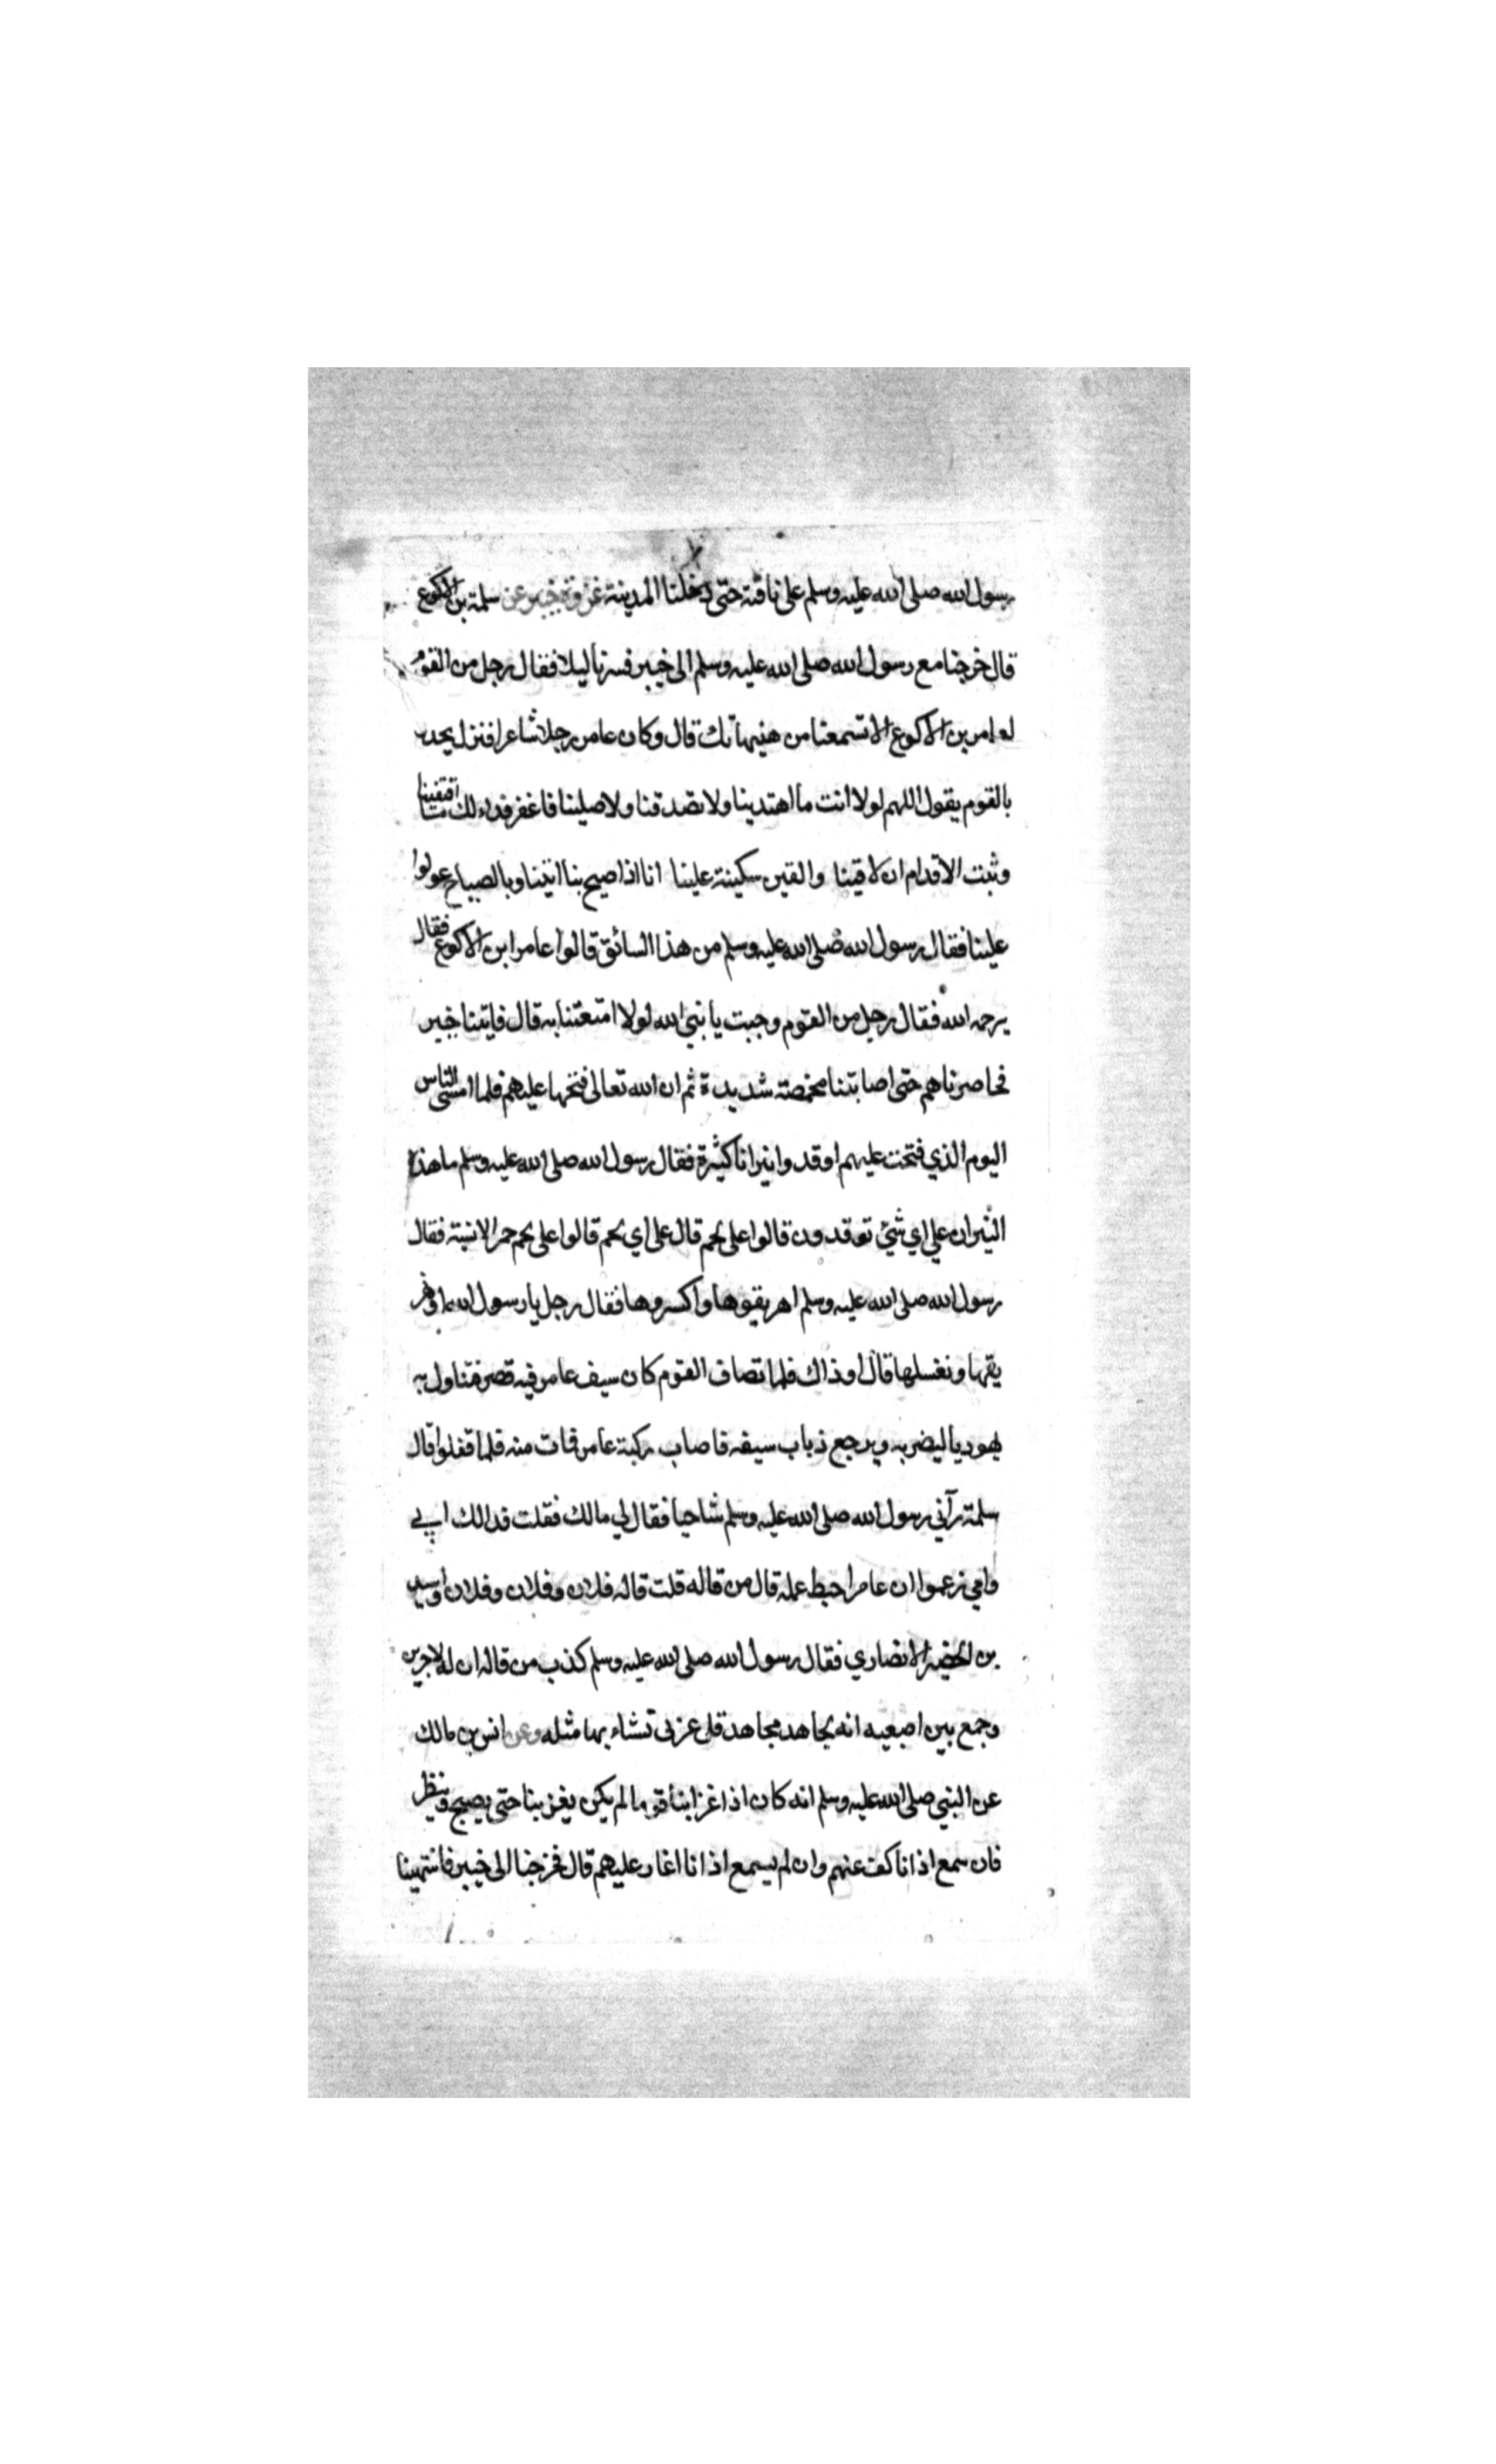 رسول الله صلى الله عليه وسلم على ناقته حتى دخلنا المدينة غزوة خيبر عن سلمة بن الاكوع
قال خرجنا مع رسول الله صلى الله عليه وسلم الى خيبر فسرنا ليلا فقال رجل من القوم
لعامر بن الاكوع الا تسمعنا من هنيهاتك قال وكان عامر رجلا شاعرا فنزل يحدو
بالقوم يقول اللهم لولا انت ما اهتدينا ولا تصدقنا ولا صلينا فاغفر فداء لك ما اقتفينا
وثبت الاقدام ان لاقينا والقين سكينة علينا انا اذا صيح بنا اتينا وبالصياح عولوا
علينا فقال رسول الله صلى الله عليه وسلم من هذا السائق قالوا عامر ابن الاكوع فقال
يرحمه الله فقال رجل من القوم وجبت يا نبي الله لولا امتعتنا به قال فاتينا خيبر
فحاصرناهم حتى اصابتنا مخمصة شديدة ثم ان الله تعالى فتحها عليهم فلما امسى الناس
اليوم الذي فتحت عليهم اوقدوا نيرانا كثيرة فقال رسول الله صلى الله عليه وسلم ما هذه
النيران على اي شيء توقدون قالوا على لحم قال على اي لحم قالوا على لحم حمر الانسية فقال
رسول الله صلى الله عليه وسلم اهريقوها واكسروها فقال رجل يا رسول الله او نهر
يقها ونغسلها قال او ذاك فلما تصاف القوم كان سيف عامر فيه قصر فتناول به
يهوديا ليضربه ويرجع ذباب سيفه فاصاب ركبة عامر فمات منه فلما قفلوا قال
سلمة رآني رسول الله صلى الله عليه وسلم شاحبا فقال لي مالك فقلت فدا لك ابي
وامي زعموا ان عامرا حبط عمله قال من قاله قلت قاله فلان وفلان وفلان واسيد
بن الحضير الانصاري فقال رسول الله صلى الله عليه وسلم كذب من قاله ان له لاجرين
وجمع بين اصبعيه انه لجاهد مجاهد قل عربي نشاء بها مثله وعن انس بن مالك
عن النبي صلى الله عليه وسلم انه كان اذا غزا بنا قوما لم يكن يغز بنا حتى يصبح وينظر
فان سمع اذانا كف عنهم وان لم يسمع اذانا اغار عليهم قال فخرجنا الى خيبر فانتهينا